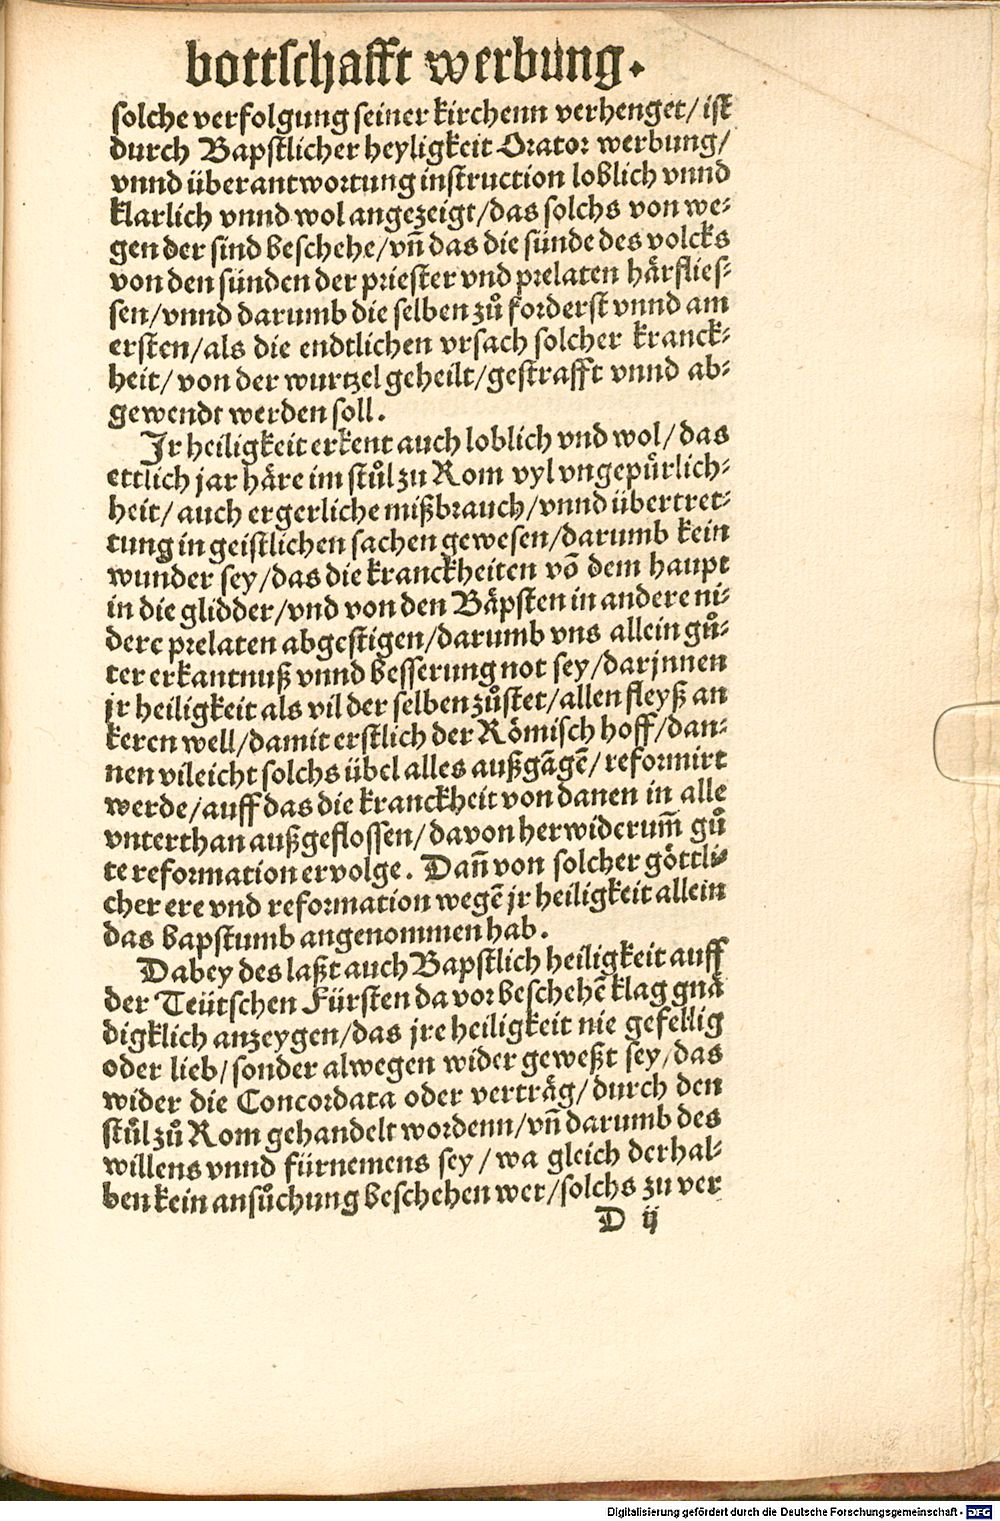 bottschafft werbung.
solche verfolgung seiner kirchenn verhenget/ ist
durch Bapstlicher heyligkeit Orator werbung/
vnnd überantwortung instruction loblich vnnd
klarlich vnnd wol angezeigt/das solchs von we⸗
gen der sind beschehe/vñ das die sünde des volcks
von den sünden der priester vnd prelaten härflies⸗
sen/vnnd darumb die selben zů forderst vnnd am
ersten/als die endtlichen vrsach solcher kranck⸗
heit/ von der wurtzel geheilt/gestrafft vnnd ab⸗
gewendt werden soll.
Jr heiligkeit erkent auch loblich vnd wol/das
ettlich jar häre im stůl zu Rom vyl vngepůrlich⸗
heit/ auch ergerliche mißbrauch/vnnd übertret⸗
tung in geistlichen sachen gewesen/darumb kein
wunder sey/das die kranckheiten võ dem haupt
in die glidder/vnd von den Bäpsten in andere ni⸗
dere prelaten abgestigen/darumb vns allein gů⸗
ter erkantnuß vnnd besserung not sey/darjnnen
jr heiligkeit als vil der selben zůstet/allen fleyß an
keren well/damit erstlich der Römisch hoff/dan⸗
nen vileicht solchs übel alles außgãgẽ/reformirt
werde/auff das die kranckheit von danen in alle
vnterthan außgeflossen/davon herwiderum̃ gů
te reformation ervolge. Dañ von solcher göttli⸗
cher ere vnd reformation wegẽ jr heiligkeit allein
das bapstumb angenommen hab.
Dabey des laßt auch Bapstlich heiligkeit auff
der Teütschen Fürsten da vor beschehẽ klag gnä
digklich anzeygen/das jre heiligkeit nie gefellig
oder lieb/sonder alwegen wider geweßt sey/das
wider die Concordata oder verträg/durch den
stůl zů Rom gehandelt wordenn/vñ darumb des
willens vnnd fürnemens sey/wa gleich derhal⸗
ben kein ansůchung beschehen wer/solchs zu ver
D ij
Digitalisierung gefördert durch die Deutsche Forschungsgemeinschaft - DFG